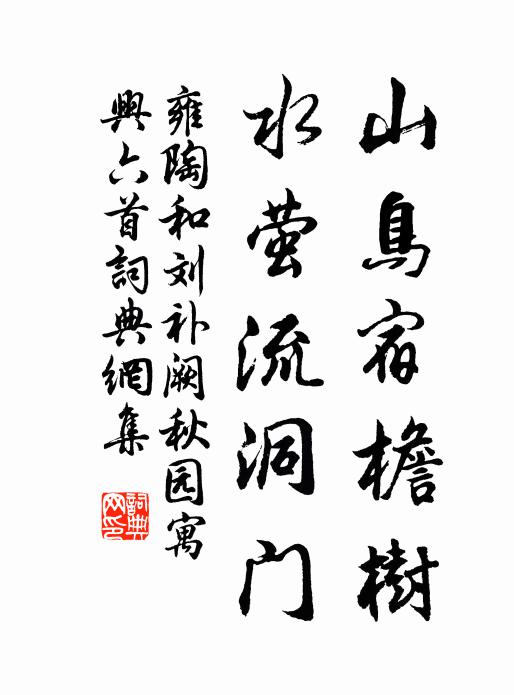 山鳥宿檐樹
水萤流洞门
雍陶和刘补阙秋园寓
興六首詞典網集
詞典网印